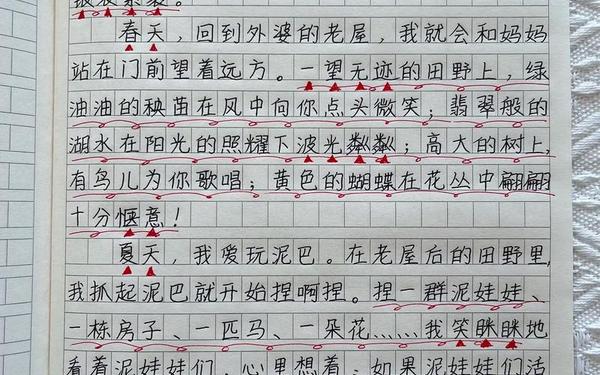 春天，回到外婆的老屋，我就会和妈妈
站在门前望着远方。一望无迹的田野上，绿
油油的秧苗在风中向你点头微笑；翡翠般的
湖水在阳光的照耀下波光粼粼；高大的树上，
有鸟儿为你歌唱；黄色的蝴蝶在花丛中翩翩
十分惬意！
夏天，我爱玩泥巴。在老屋后的田野里，
我抓起泥巴就开始捏啊捏。捏一群泥娃娃、
一栋房子、一匹马、一朵花……我笑眯眯地
看着泥娃娃们，心里想着：如果泥娃娃们活